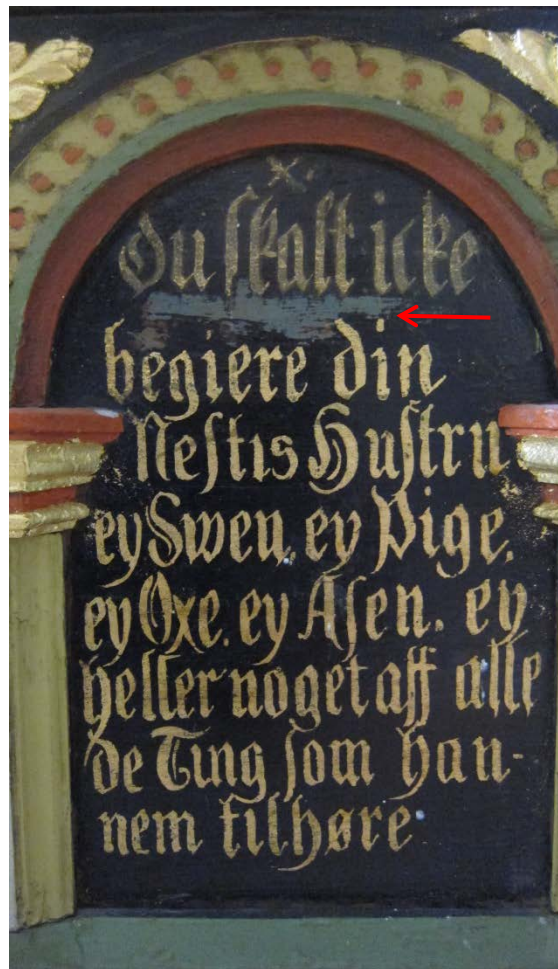 X.
Du skalt icke
begiere din
Nestis Hustru
ey Swen, ey Pige,
ey Oxe, ey Asen, ey
heller noget aff alle
de Ting som han-
nem tilhøre